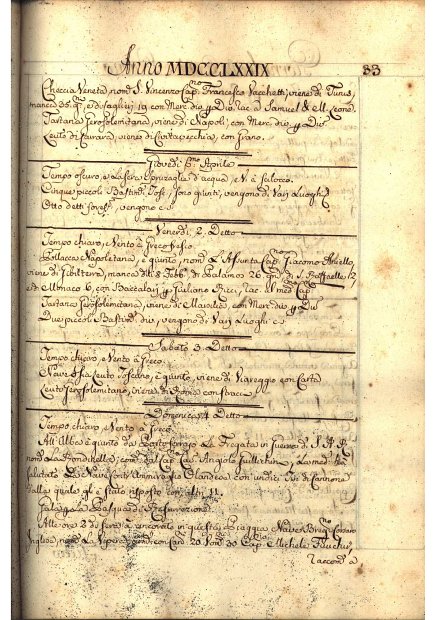 Anno MDCCLXXIX
83
Checcia Veneta, nom.ª S. Vincenzo Cap.º Francesco Vacchetti, viene di Tunis,
manca 35. e di 19 con Merc. div. rac. a Samuel & M. Leone
Tartana Gerosolemitana, viene di Napoli, con Merc. div. p. Div.
Leuto di Carrara, viene di Civitavecchia, con Grano.
Giovedi P.mo Aprile
Tempo oscuro, e la sera spruzaglia d'acqua, e V. a Scilocco.
Cinque piccoli Bastim.ti Tosc. sono giunti, vengono di Varj Luoghi
Otto detti vengono
Venerdi, 2. Detto
Tempo chiaro, e Vento a Greco fresco
Pollacca Napoletana, è giunto, nom. L'Assunta Cap. Giacomo Aniello,
viene di Gibilterra, manca di li 8 Feb. di Palamos 26 di S. Raffaelle 12
e di Monaco 6, con Baccalari p. Giuliano Ricci, rac. al med. Cap.
Tartana Gerosolemitana, viene di con Merc. div. p. Div.
Due piccoli Bastim. div., vengono di Varj Luoghi
Sabato 3. Detto
Tempo chiaro, e Vento a Greco.
Nave Leuto Toscano, è giunto, viene di Viareggio con Carta
Leuto Gerosolemitano, viene di Roma con stracci
Domenica, 4 Detto
Tempo chiaro, e Vento a Greco
All'Alba è giunto da Portoferrajo La Fregata in Guerra di S. A. R.
nom. La Rondinella, com. dal Cap. Cav. Angiolo La med. ha
salutato La Nave Com. Ammiraglio Olandese con undici Tiri di Cannone
dalla quale gli è stato risposto con altri 11.
Pasqua di Resurrezione
Alle ore 2 di sera è ancorato in questa Spiaggia Nave Brig. Corsaro
Inglese, nom. La Vipera, con Can. 20 Uom. 30 Cap. Michele
raccom. a